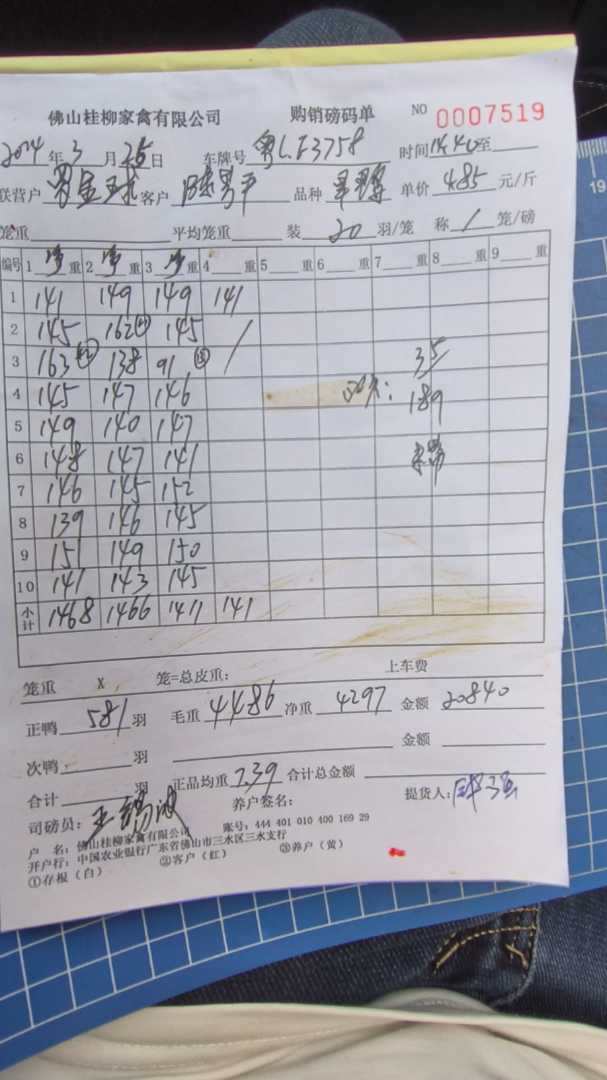 佛山桂柳家禽有限公司 购销磅码单 NO 0007519
2024年3月25日 车牌号 粤L.F3758 时间14:40至
联营户 客户 陈男平 品种 单价 4.85 元/斤
笼重 平均笼重 装 20 羽/笼 称 1 笼/磅
编号 1 净 重 2 净 重 3 净 重 4 重 5 重 6 重 7 重 8 重 9 重
1 141 149 149 141
2 145 162 145 /
3 163 138 91 35
4 145 147 146 189
5 149 140 147
6 148 147 141
7 146 145 152
8 139 146 145
9 151 149 150
10 141 143 145
小计 1468 1466 1411 141
笼重 X 笼=总皮重: 上车费
正鸭 581 羽 毛重 4486 净重 4297 金额 20840
次鸭 羽 金额
合计 羽 正品均重 7.39 合计总金额
司磅员: 养户签名: 提货人:
户 名:佛山桂柳家禽有限公司 账号:444 401 010 400 169 29
开户行:中国农业银行广东省佛山市三水区三水支行
①存根(白) ②客户(红) ③养户(黄)
19